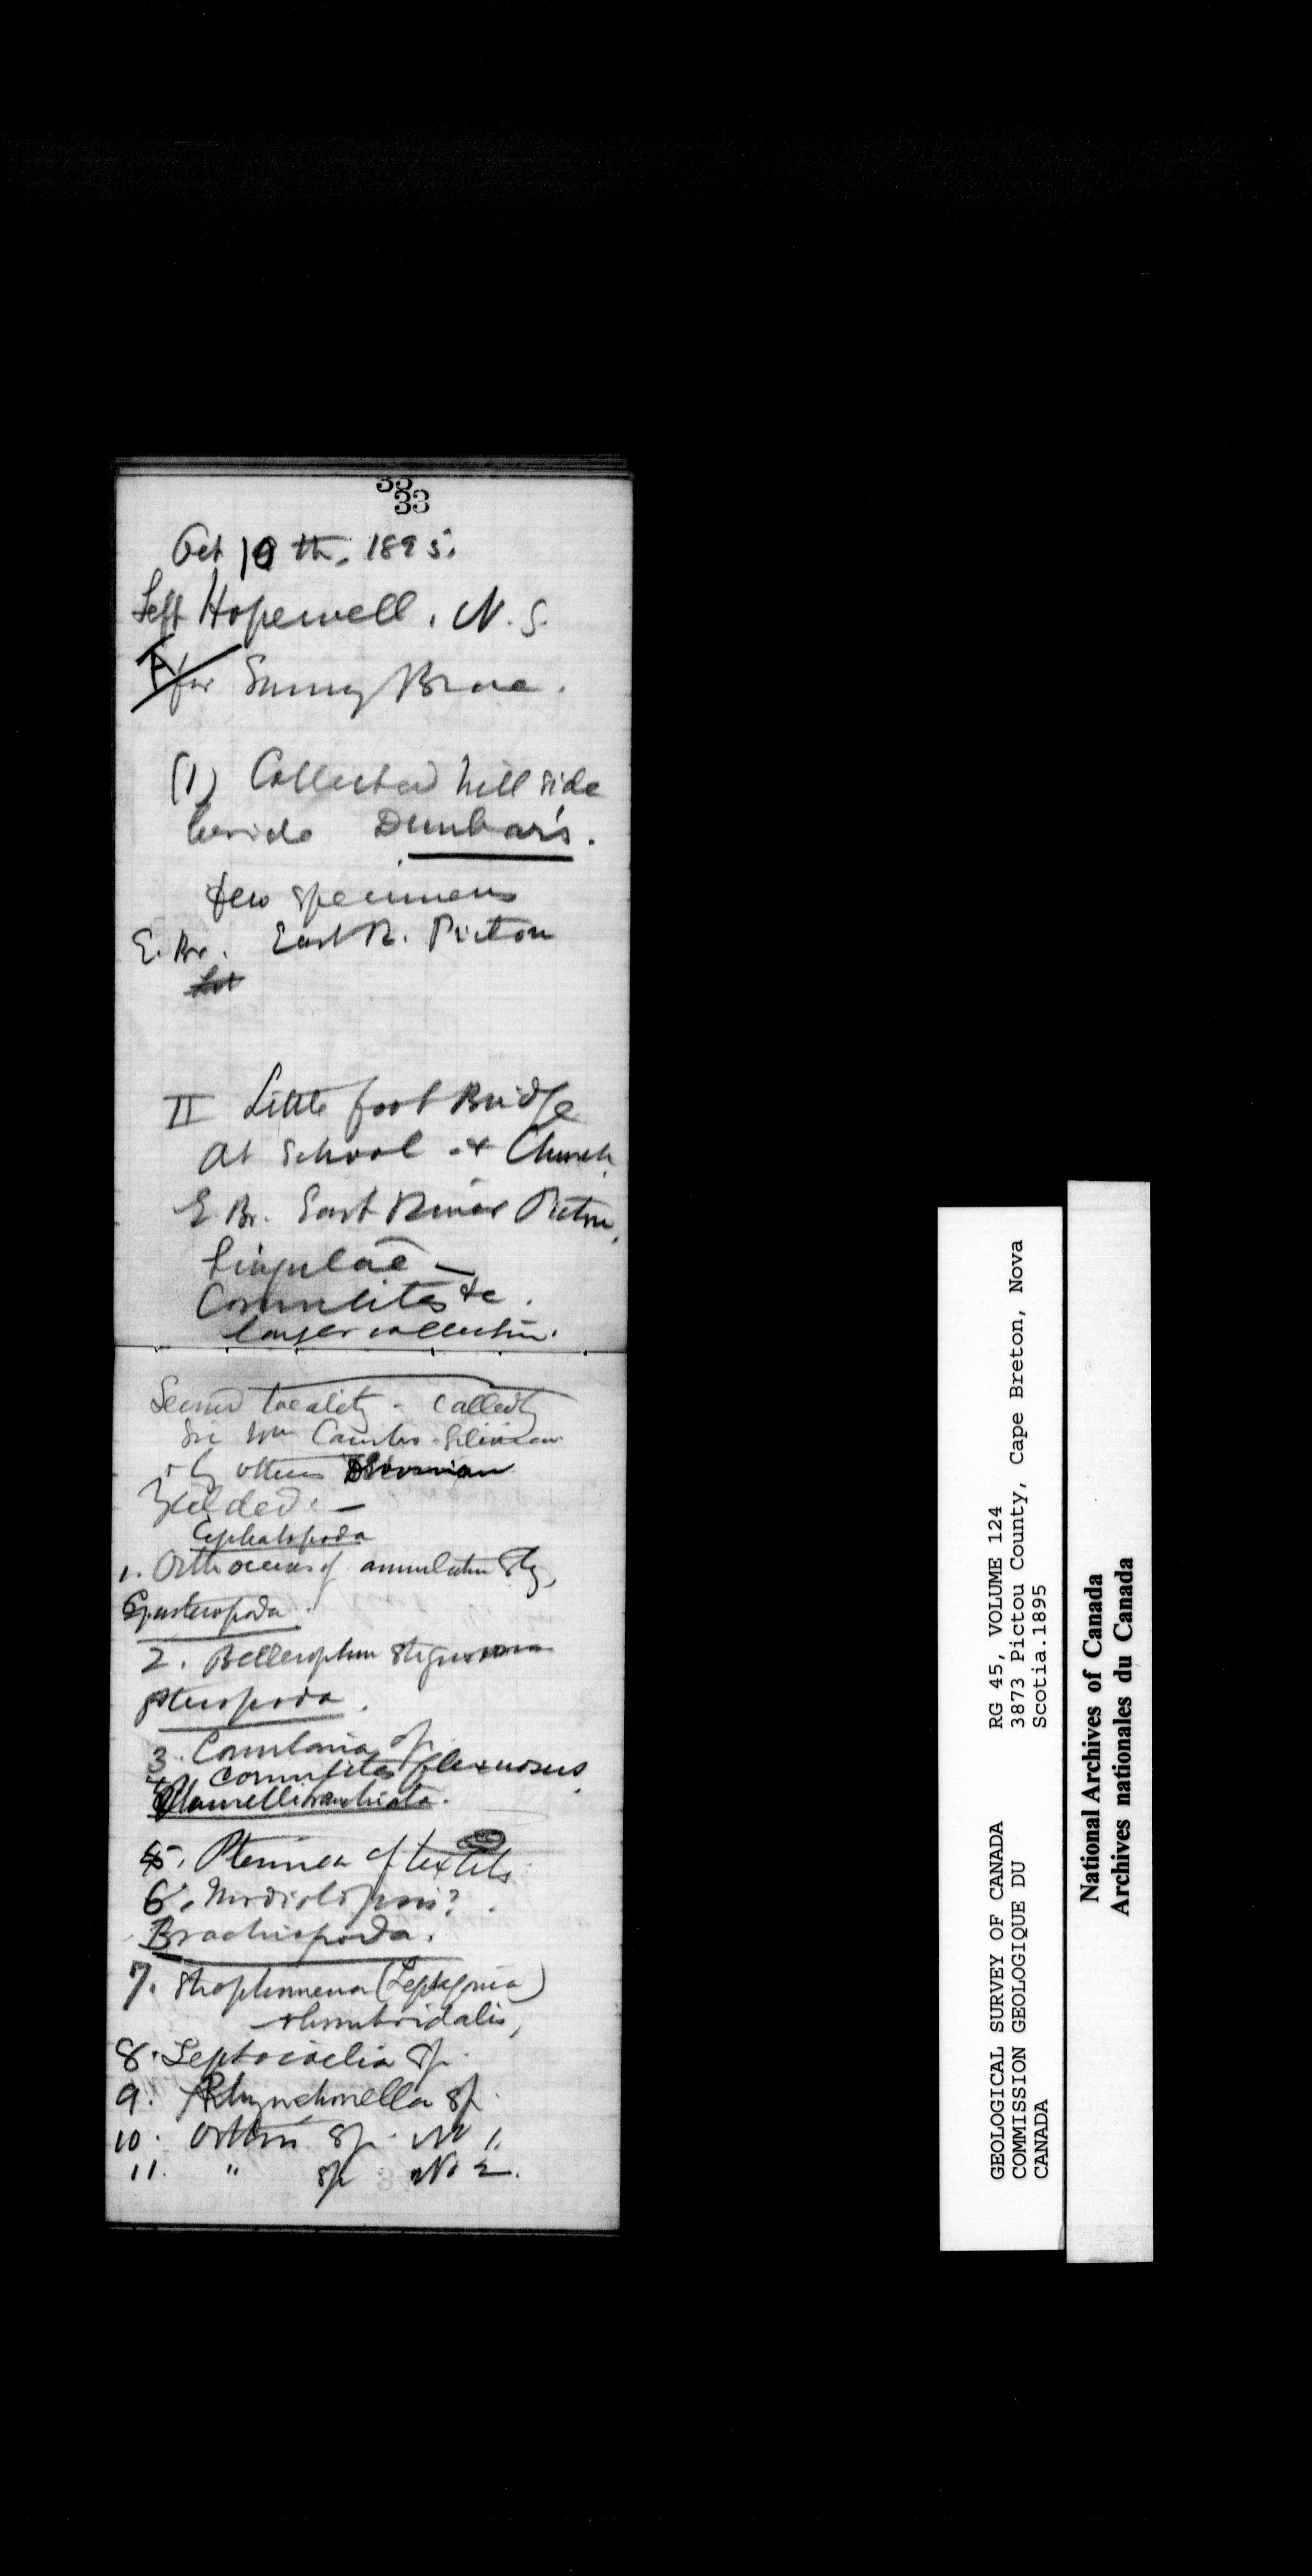 33
33
Oct 10th. 1895.
Left Hopewell, N.S.
for Sunny Brae.
(1) Collected hill side
beside Dunbar's.
few specimens
E. Br. East R. Pictou
II Little foot Bridge
at School & Church
E. Br. East River Pictou,
Lingulae —
Cornulites &c.
larger collection.
Second locality - called by
Sir Wm Cambro-Silurian
& by others Devonian
Yielded: —
Cephalopoda
1. Orthoceras cf annulatum
Gasteropoda.
2. Bellerophon
Pteropoda.
3. Conularia sp.
4 Cornulites flexuosus.
Lamellibranchiata.
5. Pterinea cf textilis
6. Modiolopsis?
Brachiopoda.
7. Strophomena (Leptagonia)
rhomboidalis,
8. Leptocoelia sp.
9. Rhynchonella sp.
10. Orthis sp. No 1.
11. " sp No 2.
GEOLOGICAL SURVEY OF CANADA
COMMISSION GEOLOGIQUE DU
CANADA
RG 45, VOLUME 124
3873 Pictou County, Cape Breton, Nova
Scotia.1895
National Archives of Canada
Archives nationales du Canada